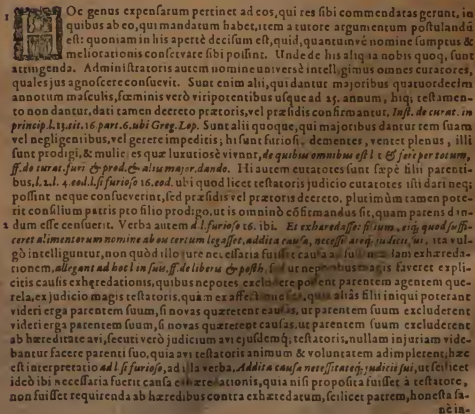 1 HOc genus expensarum pertinet ad eos, qui res sibi commendatas gerunt, in
quibus ab eo, qui mandatum habet, item a tutore argumentum postulandū
est: quoniam in his apertè decisum est, quid, quantumvè nomine sumptus &
meliorationis consetvate sibi possint. Unde de his aliqua nobis quoq, sunt
attingenda. Administratoris autem nomine universè intelligimus omnes curatores,
quales jus agnoscere consuevit. Sunt enim alii, qui dantur majoribus quatuordecim
annotum masculis, fœminis verò viripotentibus usque ad 25. annum, hiq; testamen-
to non dantur, dati tamen decreto prætoris, vel præsidis confirmantur, Inst. de curat. in
princip. l. 13. tit. 16 part. 6. ubi Greg. Lop. Sunt alii quoque, qui majoribus dantur rem suam
vel negligentibus, vel gerere impeditis; hi sunt furiosi, dementes, ventet plenus, illi
sunt prodigi, & mulieres quæ luxutiosè vivunt, de quibus omnibus est l 1 & ferè per totum,
ff. de curat. furi & prod. & alius major. dando. Hi autem cutatotes sunt sæpè filii parenti-
bus, l. 2. l. 4. eod. l. si furioso 16. eod. ubi quod licet testatoris judicio cutatotes isti dari neq;
possint neque consueverint, sed præsidis vel prætoris decreto, plutimùm tamen pote-
rit consilium patris pro filio prodigo, ut is omninò cōfirmandus sit, quam parens dan-
2 dum esse censuerit. Verba autem d. l. furioso 16. ibi. Et exhæredasset filium, eiq, quod suffi-
ceret alimentorum nomine ab eu certum legasset, addita causa, necessitateq; judicii sui, ita vul-
gò intelliguntur, non quòd illo jure necessaria fuisset causa ad illam exhæreda-
tionem, allegant ad hoc l in suis, ff de liberu & posth, sed ut nepotibus magis faveret expli-
citis caulis exhæredationis, quibus nepotes excludere possent parentem agentem que-
rela, ex judicio magis testatoris. quàm ex affectione sua, quia aliàs filii iniqui poterant
videri erga parentem suum, si novas quærerent causas, ut parentem suum excluderent
videri erga parentem suum, si novas quærerent causas, ut parentem suum excluderent
ab hæreditate avi, secuti verò judicium avi ejusdemq; testatoris, nullam injuriam vide-
bantur facere parenti suo, quia avi testatoris animum & voluntatem adimplerent; hæc
est interpretatio ad l. si furioso, ad illa verba, Addita causa necessitateq; judicii sui, ut scilicet
ideò ibi necessaria fuerit causa exhæredationis, quia nisi proposita fuisset à testatore,
non fuisset requirenda ab hæredibus contra exhæredatum, scilicet parentem, honesta sa-
nè in-